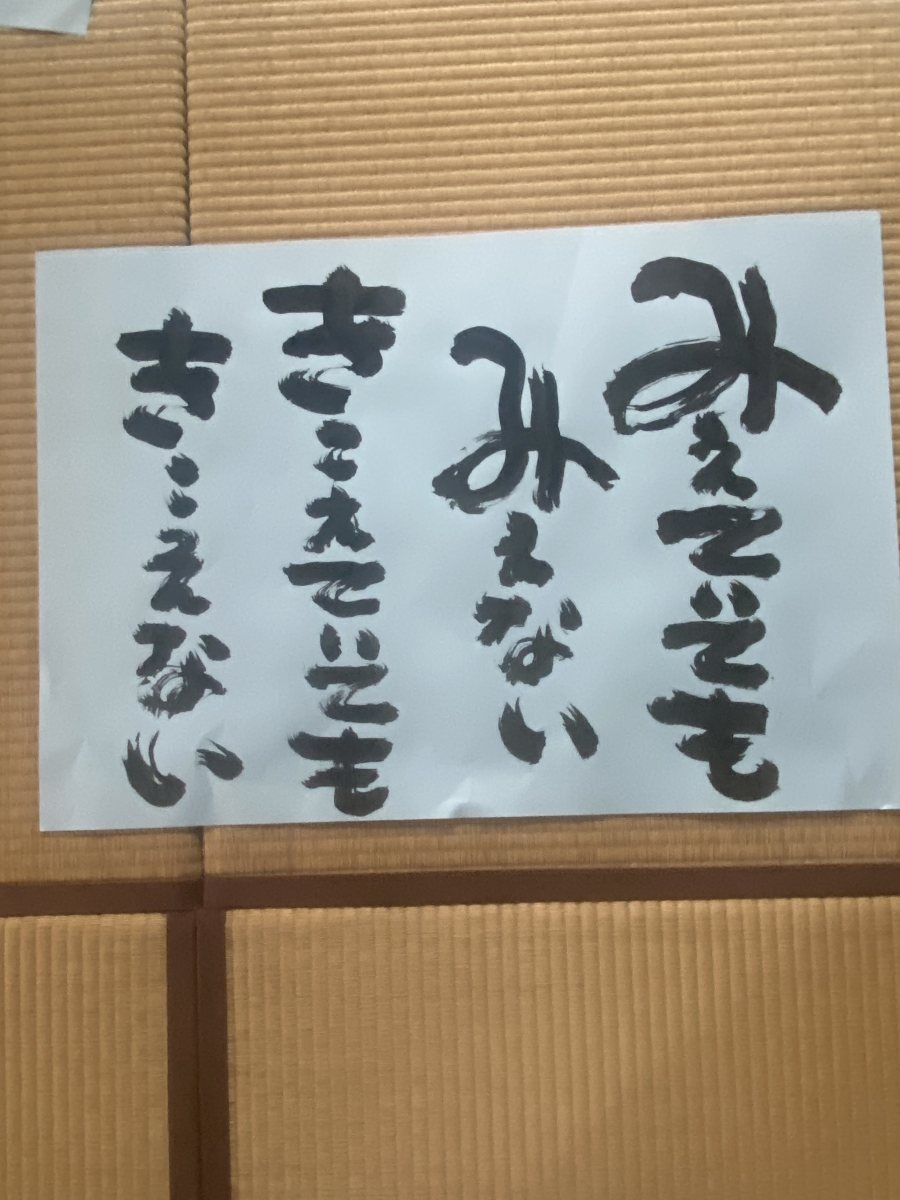 みえていても
みえない
きこえていても
きこえない